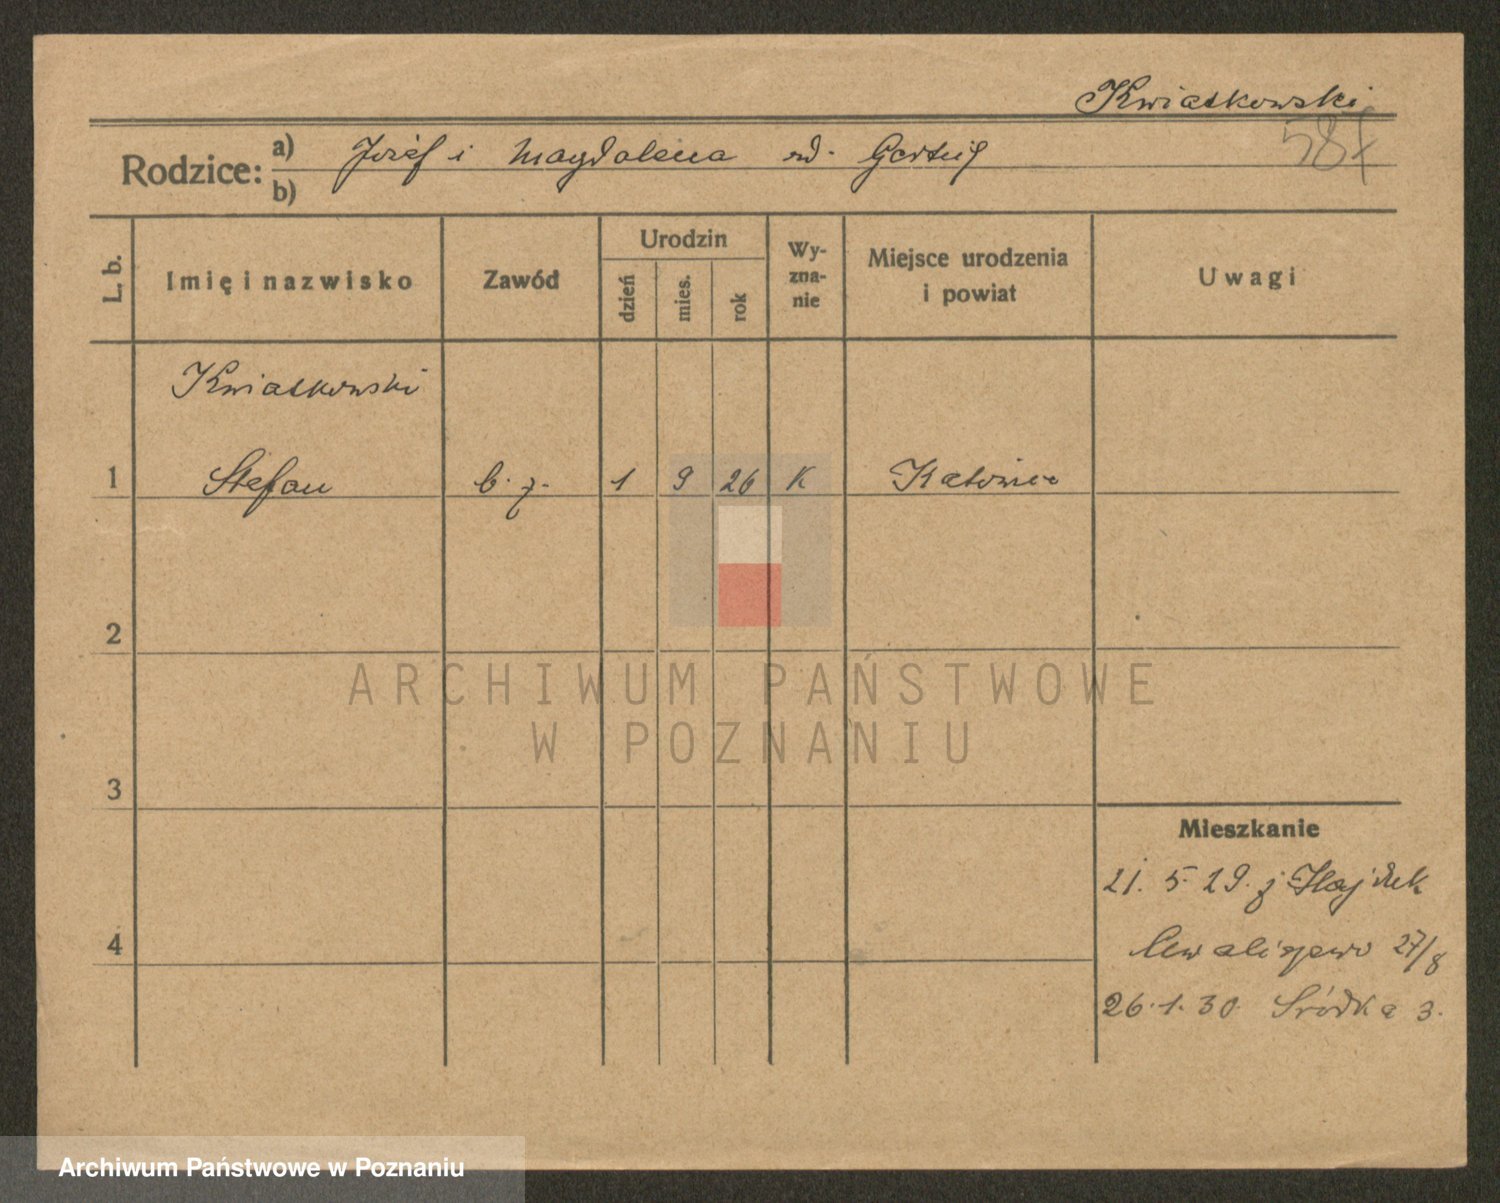 Kwiatkowski
587
Rodzice: a) Józef i Magdalena
b)
L. b. Imię i nazwisko Zawód Urodzin dzień mies. rok Wy-zna-nie Miejsce urodzenia i powiat Uwagi
Kwiatkowski
1 Stefan b. z. 1 9 26 K Katowice
2
ARCHIWUM PAŃSTWOWE
W POZNANIU
3
Mieszkanie
21. 5. 29. z Hajduk
4
Chwaliszewo 27/8
26. 1. 30. Śródka 3.
Archiwum Państwowe w Poznaniu